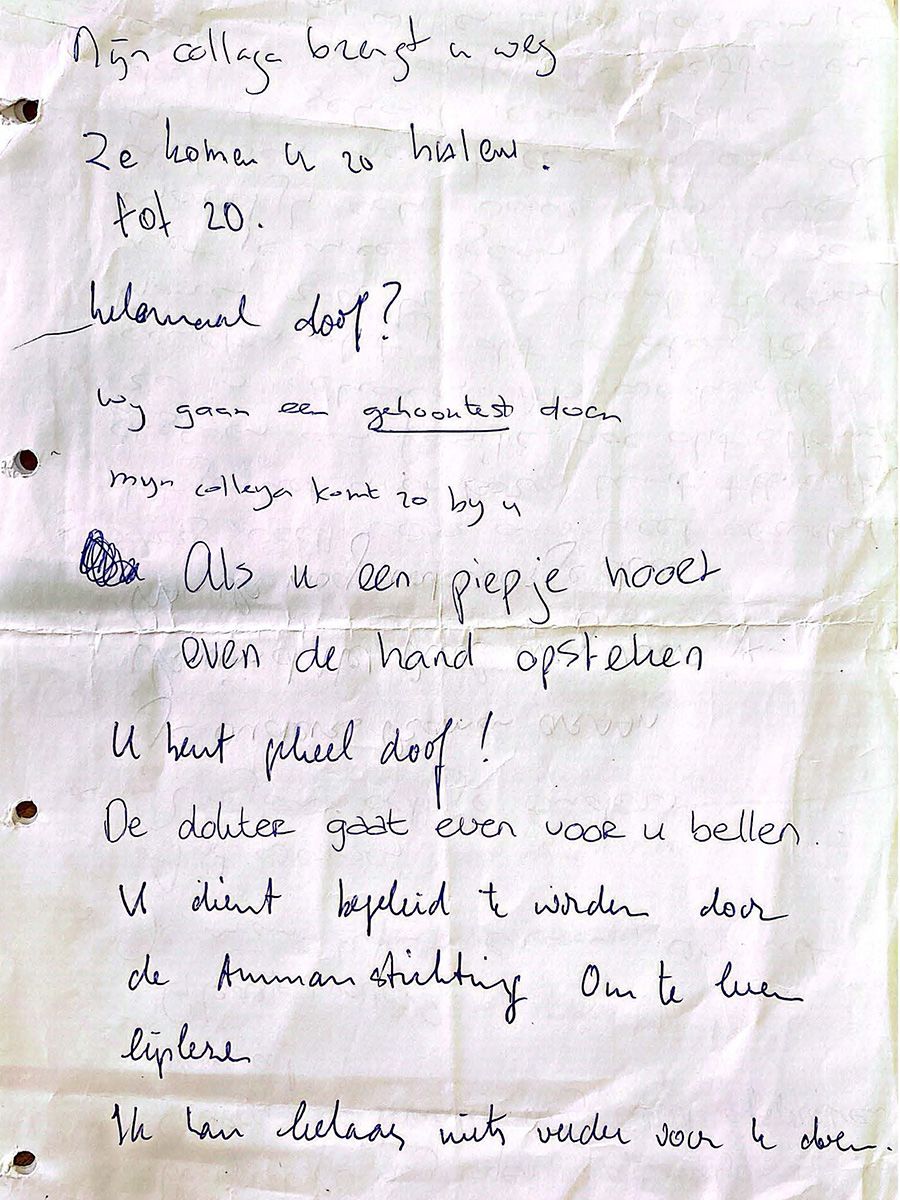 Mijn collega brengt u weg
Ze komen u zo halen.
tot zo.
helemaal doof?
Wy gaan een gehoortest doen
myn collega komt zo by u
Als u een piepje hoort
even de hand opsteken
U bent geheel doof!
De dokter gaat even voor u bellen.
U dient begeleid te worden door
de Ammanstichting Om te leren
liplezen
Ik kan helaas niets verder voor u doen.